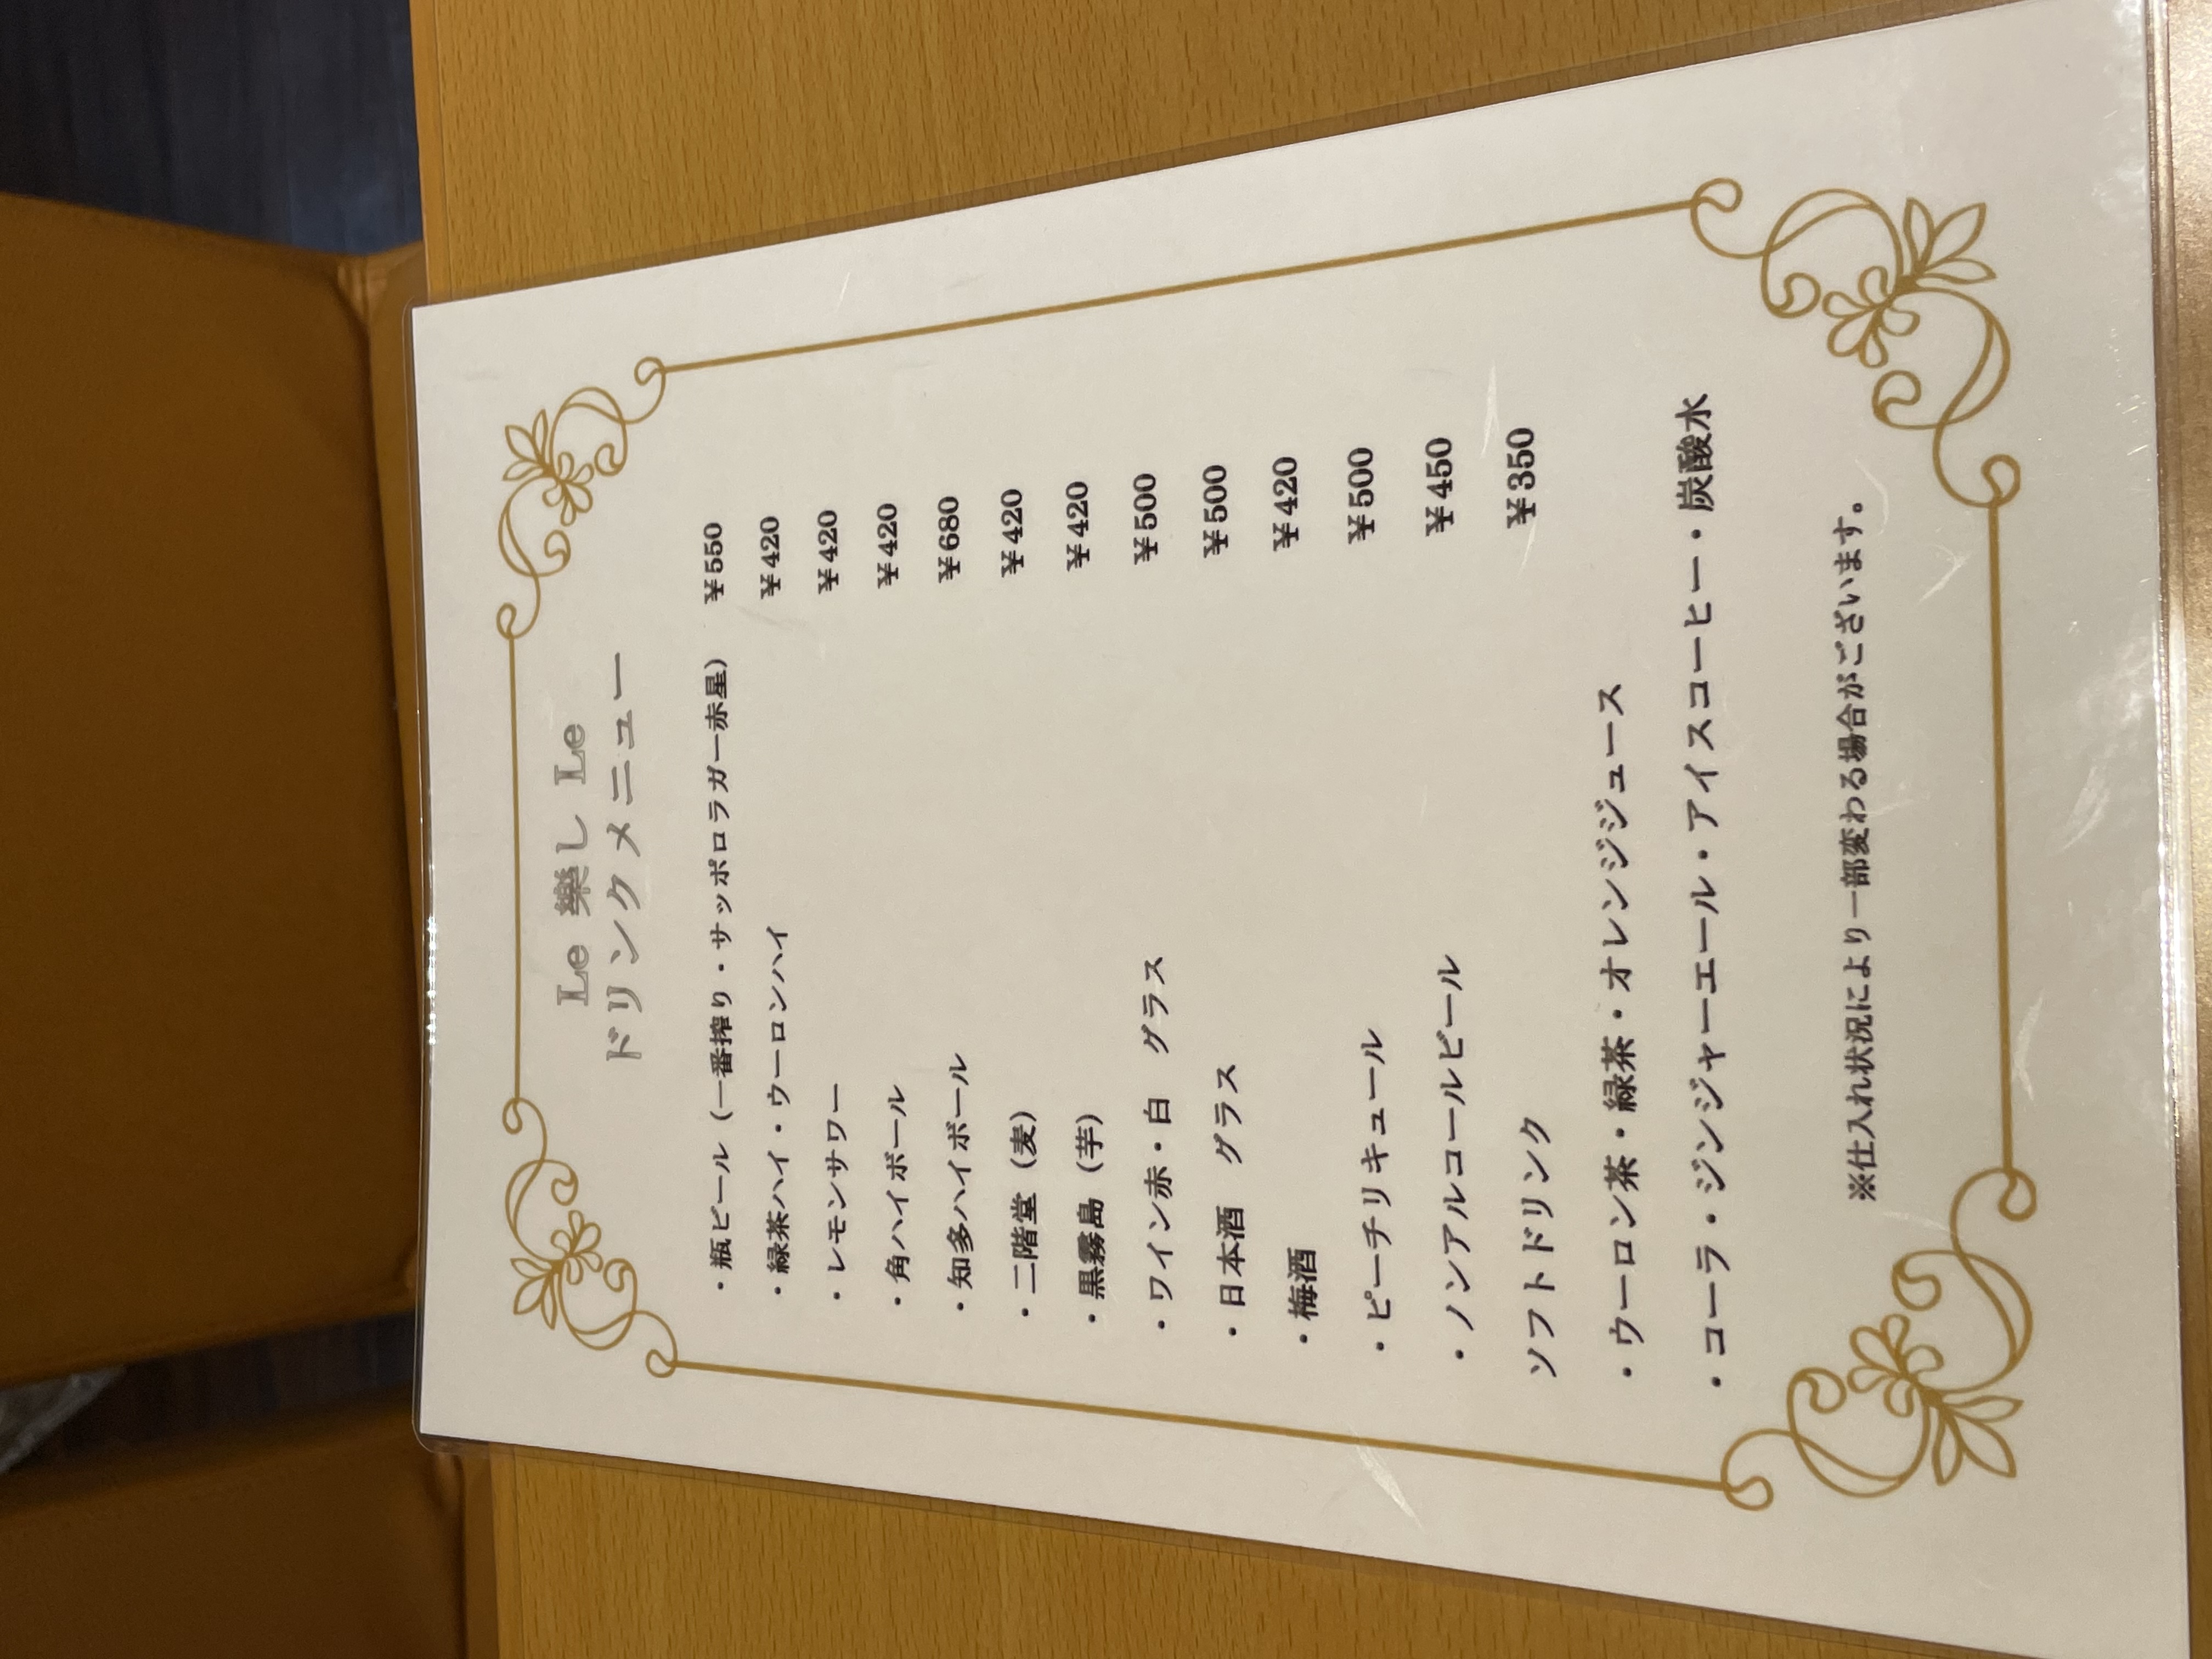 Le 樂し Le
ドリンクメニュー
・瓶ビール（一番搾り・サッポロラガー赤星） ¥550
・緑茶ハイ・ウーロンハイ ¥420
・レモンサワー ¥420
・角ハイボール ¥420
・知多ハイボール ¥680
・二階堂（麦） ¥420
・黒霧島（芋） ¥420
・ワイン赤・白　グラス ¥500
・日本酒　グラス ¥500
・梅酒 ¥420
・ピーチリキュール ¥500
・ノンアルコールビール ¥450
ソフトドリンク ¥350
・ウーロン茶・緑茶・オレンジジュース
・コーラ・ジンジャーエール・アイスコーヒー・炭酸水
※仕入れ状況により一部変わる場合がございます。